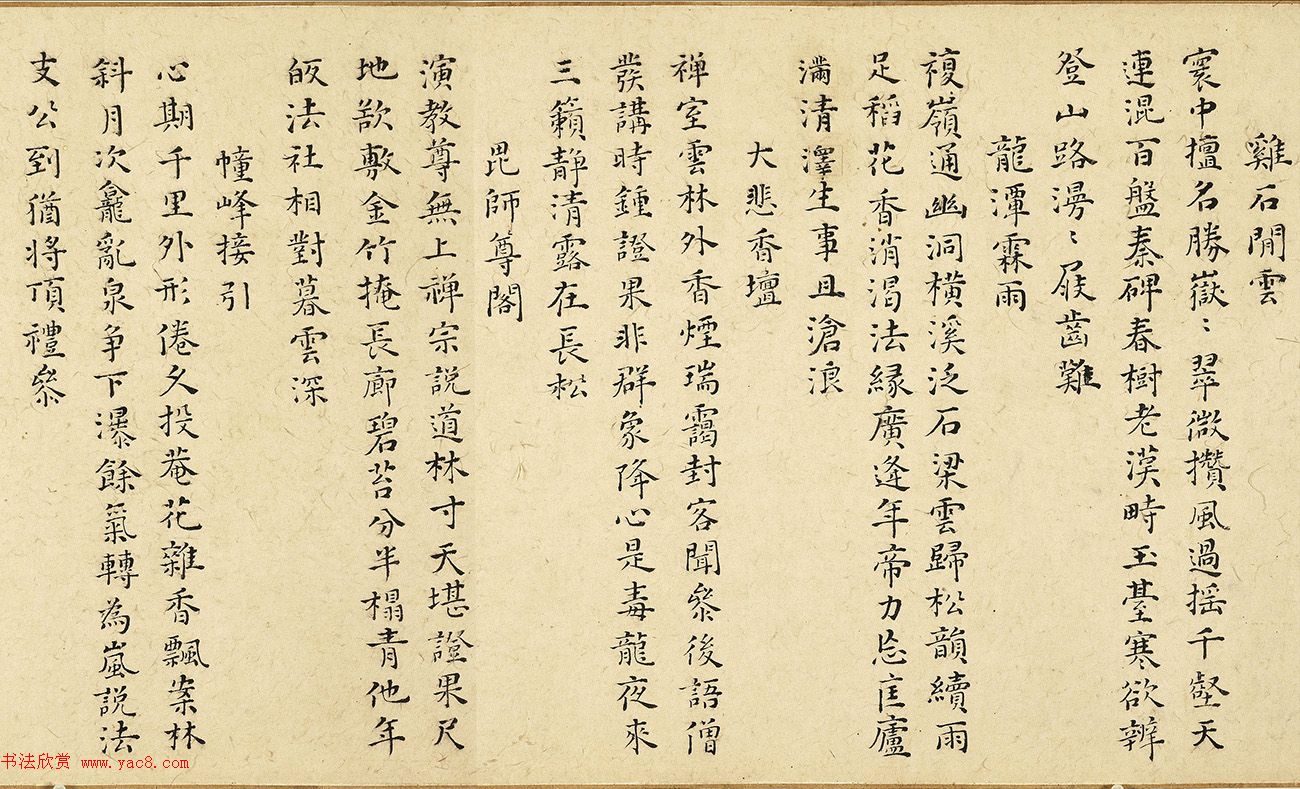 雞石閒雲
寰中擅名勝嶽〻翠微攢風過搖千壑天
連混百盤秦碑春樹老漢畤玉臺寒欲辨
登山路澷〻屐齒難
龍潭霖雨
複嶺通幽洞橫溪泛石梁雲歸松韻續雨
足稻花香消渴法緣廣逢年帝力忘匡廬
滿清澤生事且滄浪
大悲香壇
禅室雲林外香煙瑞靄封客聞叅後語僧
發講時鍾證果非群象降心是毒龍夜來
三籟靜清露在長松
毘師尊閣
演教尊無上禅宗説道林寸天堪證果尺
地欲敷金竹掩長廊碧苔分半榻青他年
皈法社相對暮雲深
幢峰接引
心期千里外形倦久投菴花雜香飄案林
斜月次龕亂泉爭下瀑餘氣轉為嵐説法
支公到猶將頂禮叅
书法欣赏 www.yac8.com